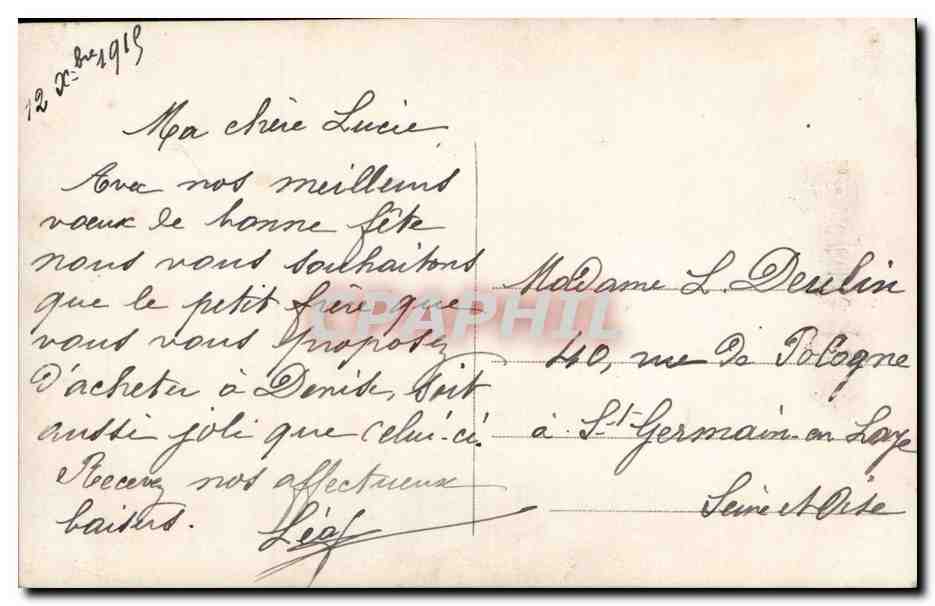 12 Xbre 1915
Ma chère Lucie
Avec nos meilleurs
voeux de bonne fête
nous vous souhaitons
que le petit frère que
vous vous proposez
d'acheter à Denise, soit
aussi joli que celui-ci.
Recevez nos affectueux
baisers. Léa
Madame L. Deulin
40, rue de Pologne
à St-Germain-en Laye
Seine et Oise
CPAPHIL